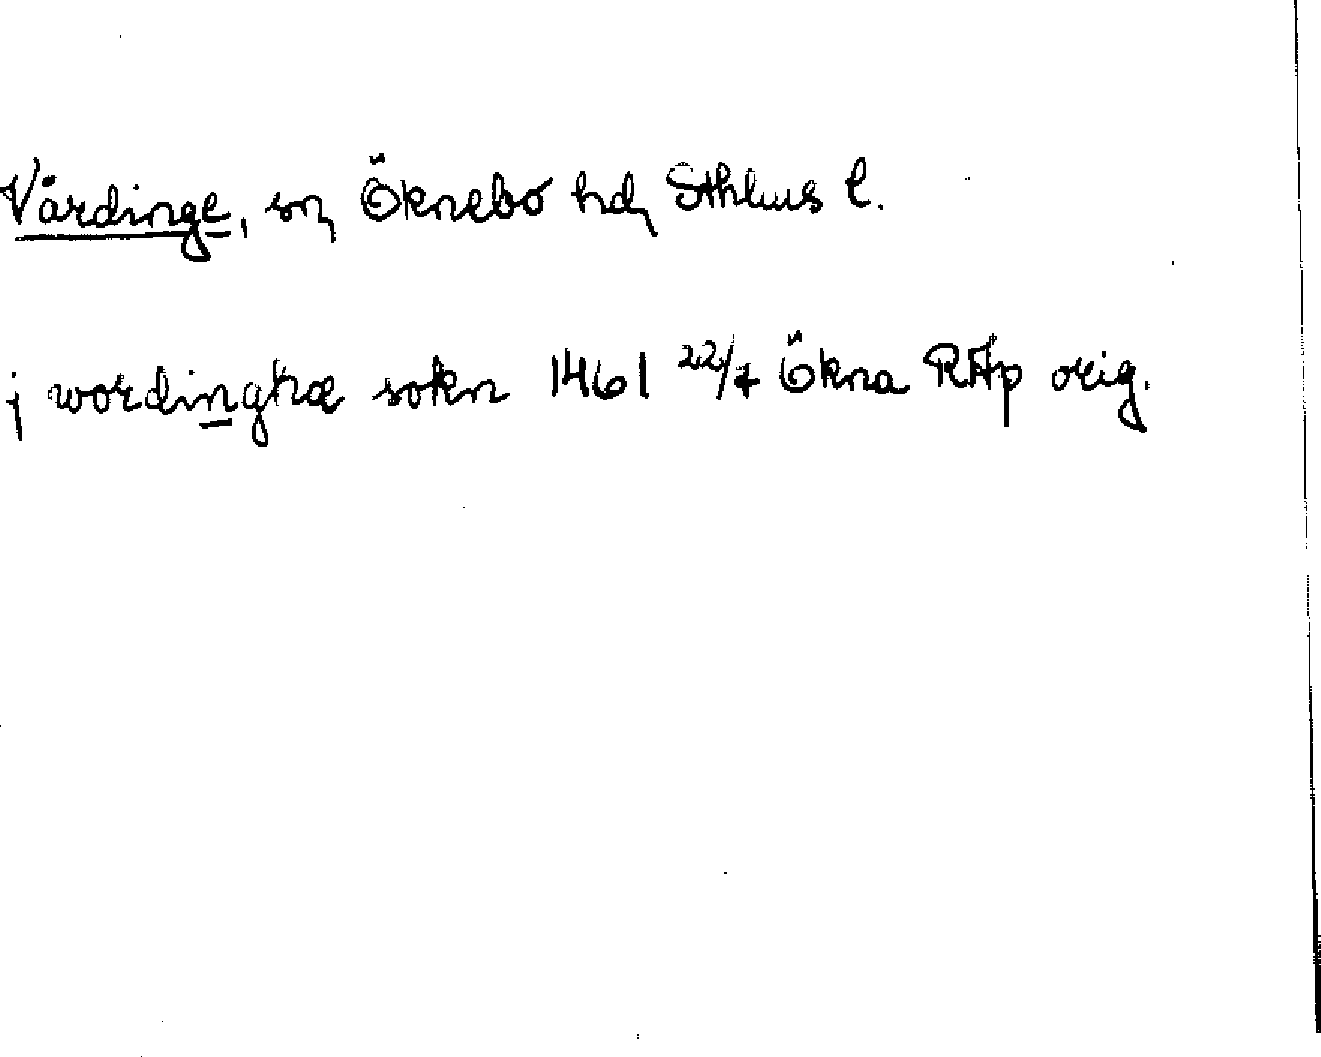 Vårdinge, sn, Öknebo hd, Sthlms l.
j wordinghæ sokn 1461 22/4 Ökna RAp orig.